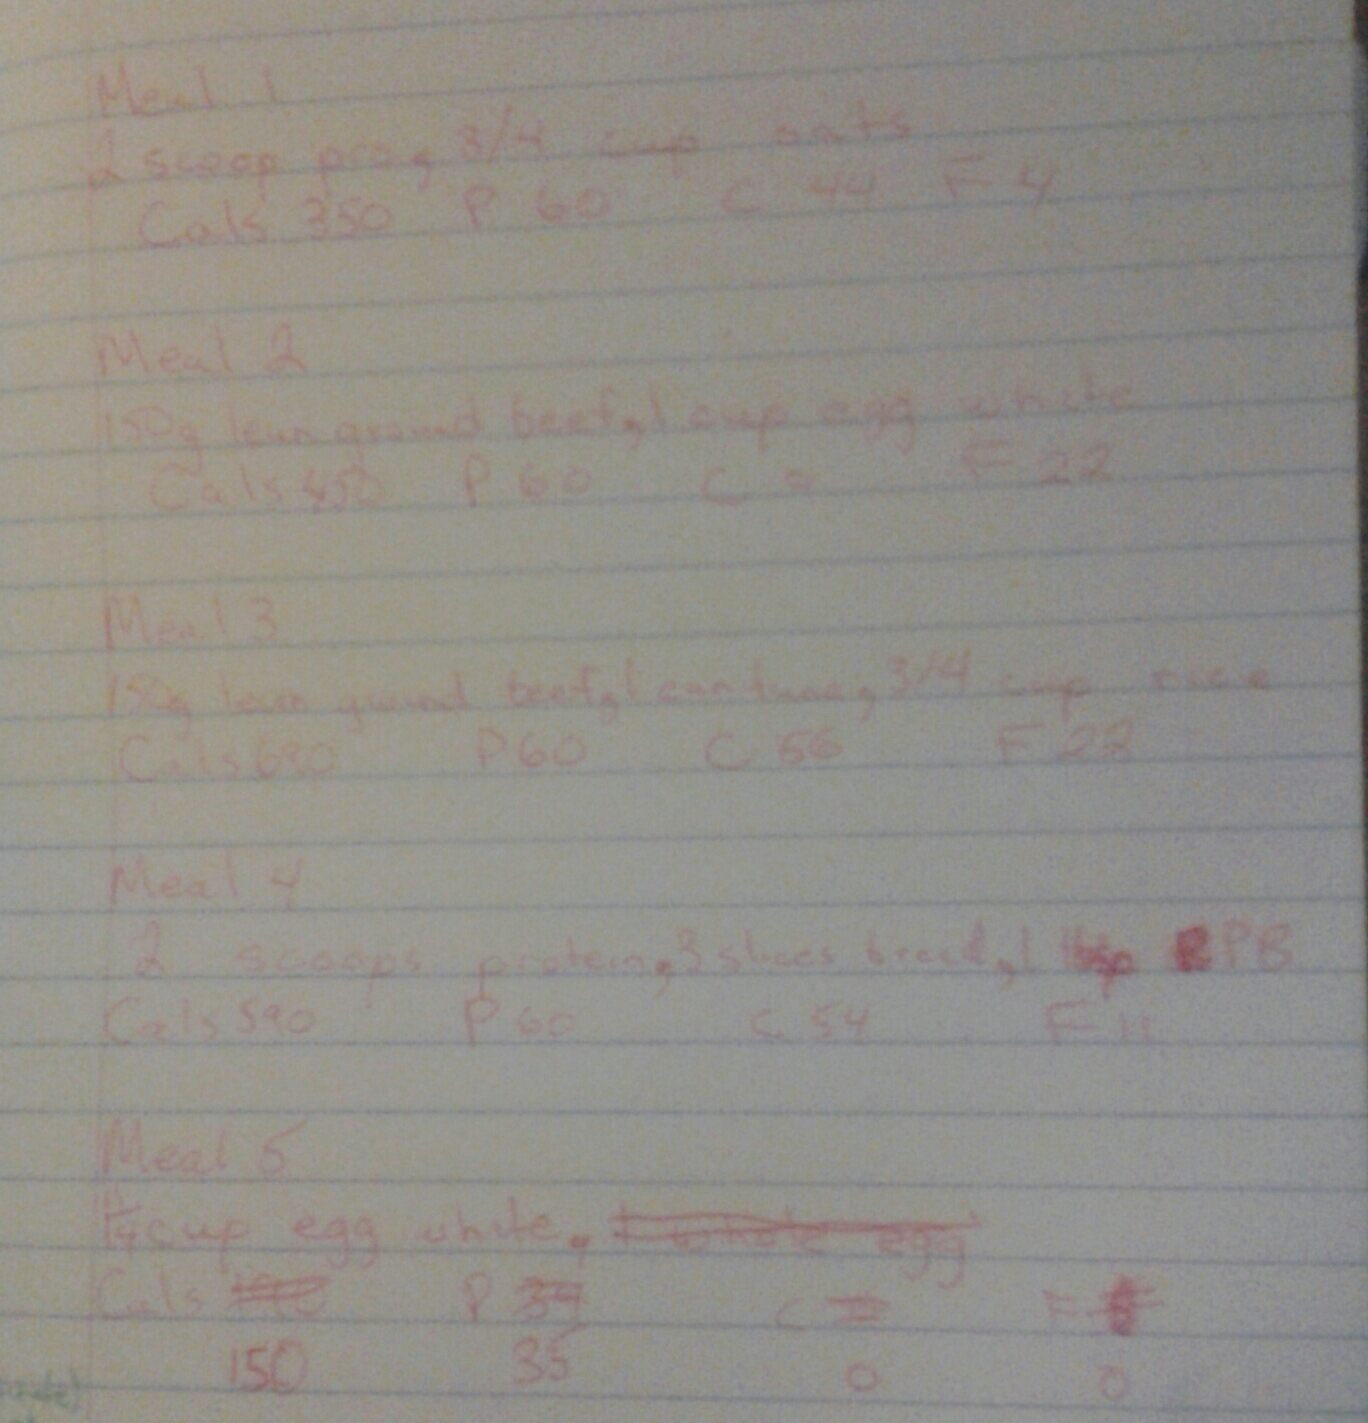 Meal 1
2 scoop pro, 3/4 cup oats
Cals 350 P 60 C 44 F 4
Meal 2
150g lean ground beef, 1 cup egg white
Cals 450 P 60 C F 22
Meal 3
150g lean ground beef, 1 can tuna, 3/4 cup rice
Cals 690 P 60 C 56 F 22
Meal 4
2 scoops protein, 3 slices bread, 1 PB
Cals 590 P 60 C 54 F 11
Meal 5
cup egg white, 1 whole egg
Cals P 37 C F
150 35 0 0